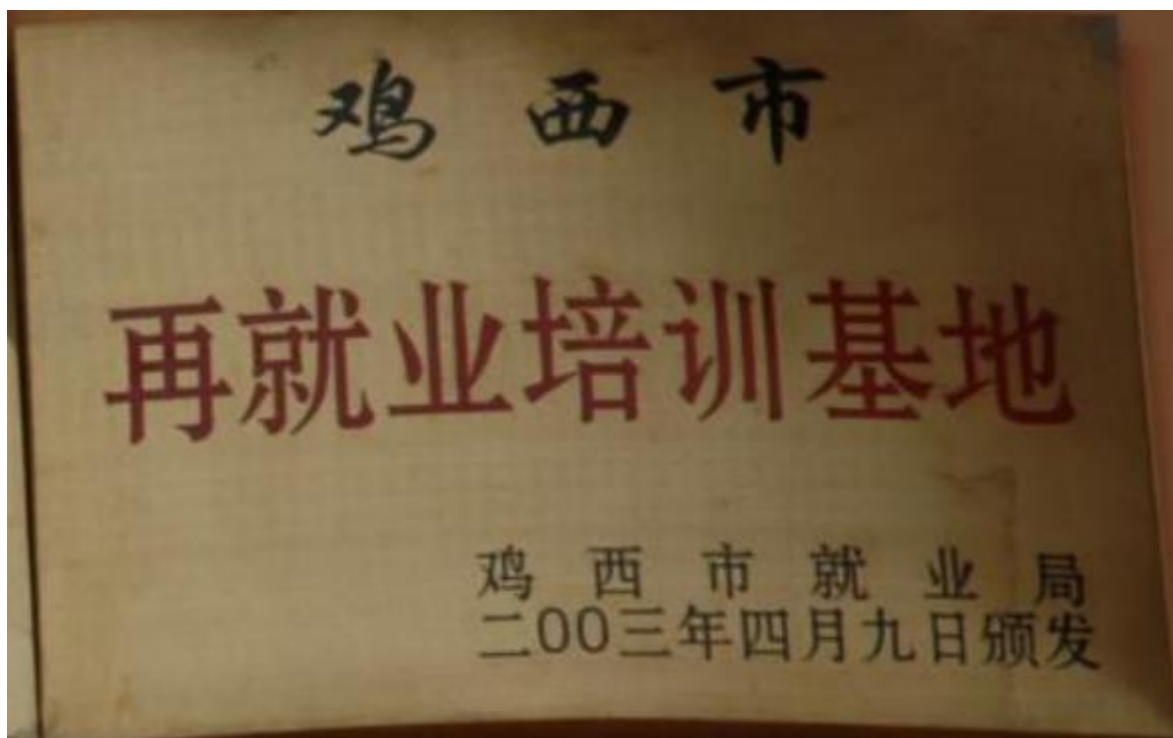 鸡西市
再就业培训基地
鸡西市就业局
二00三年四月九日颁发